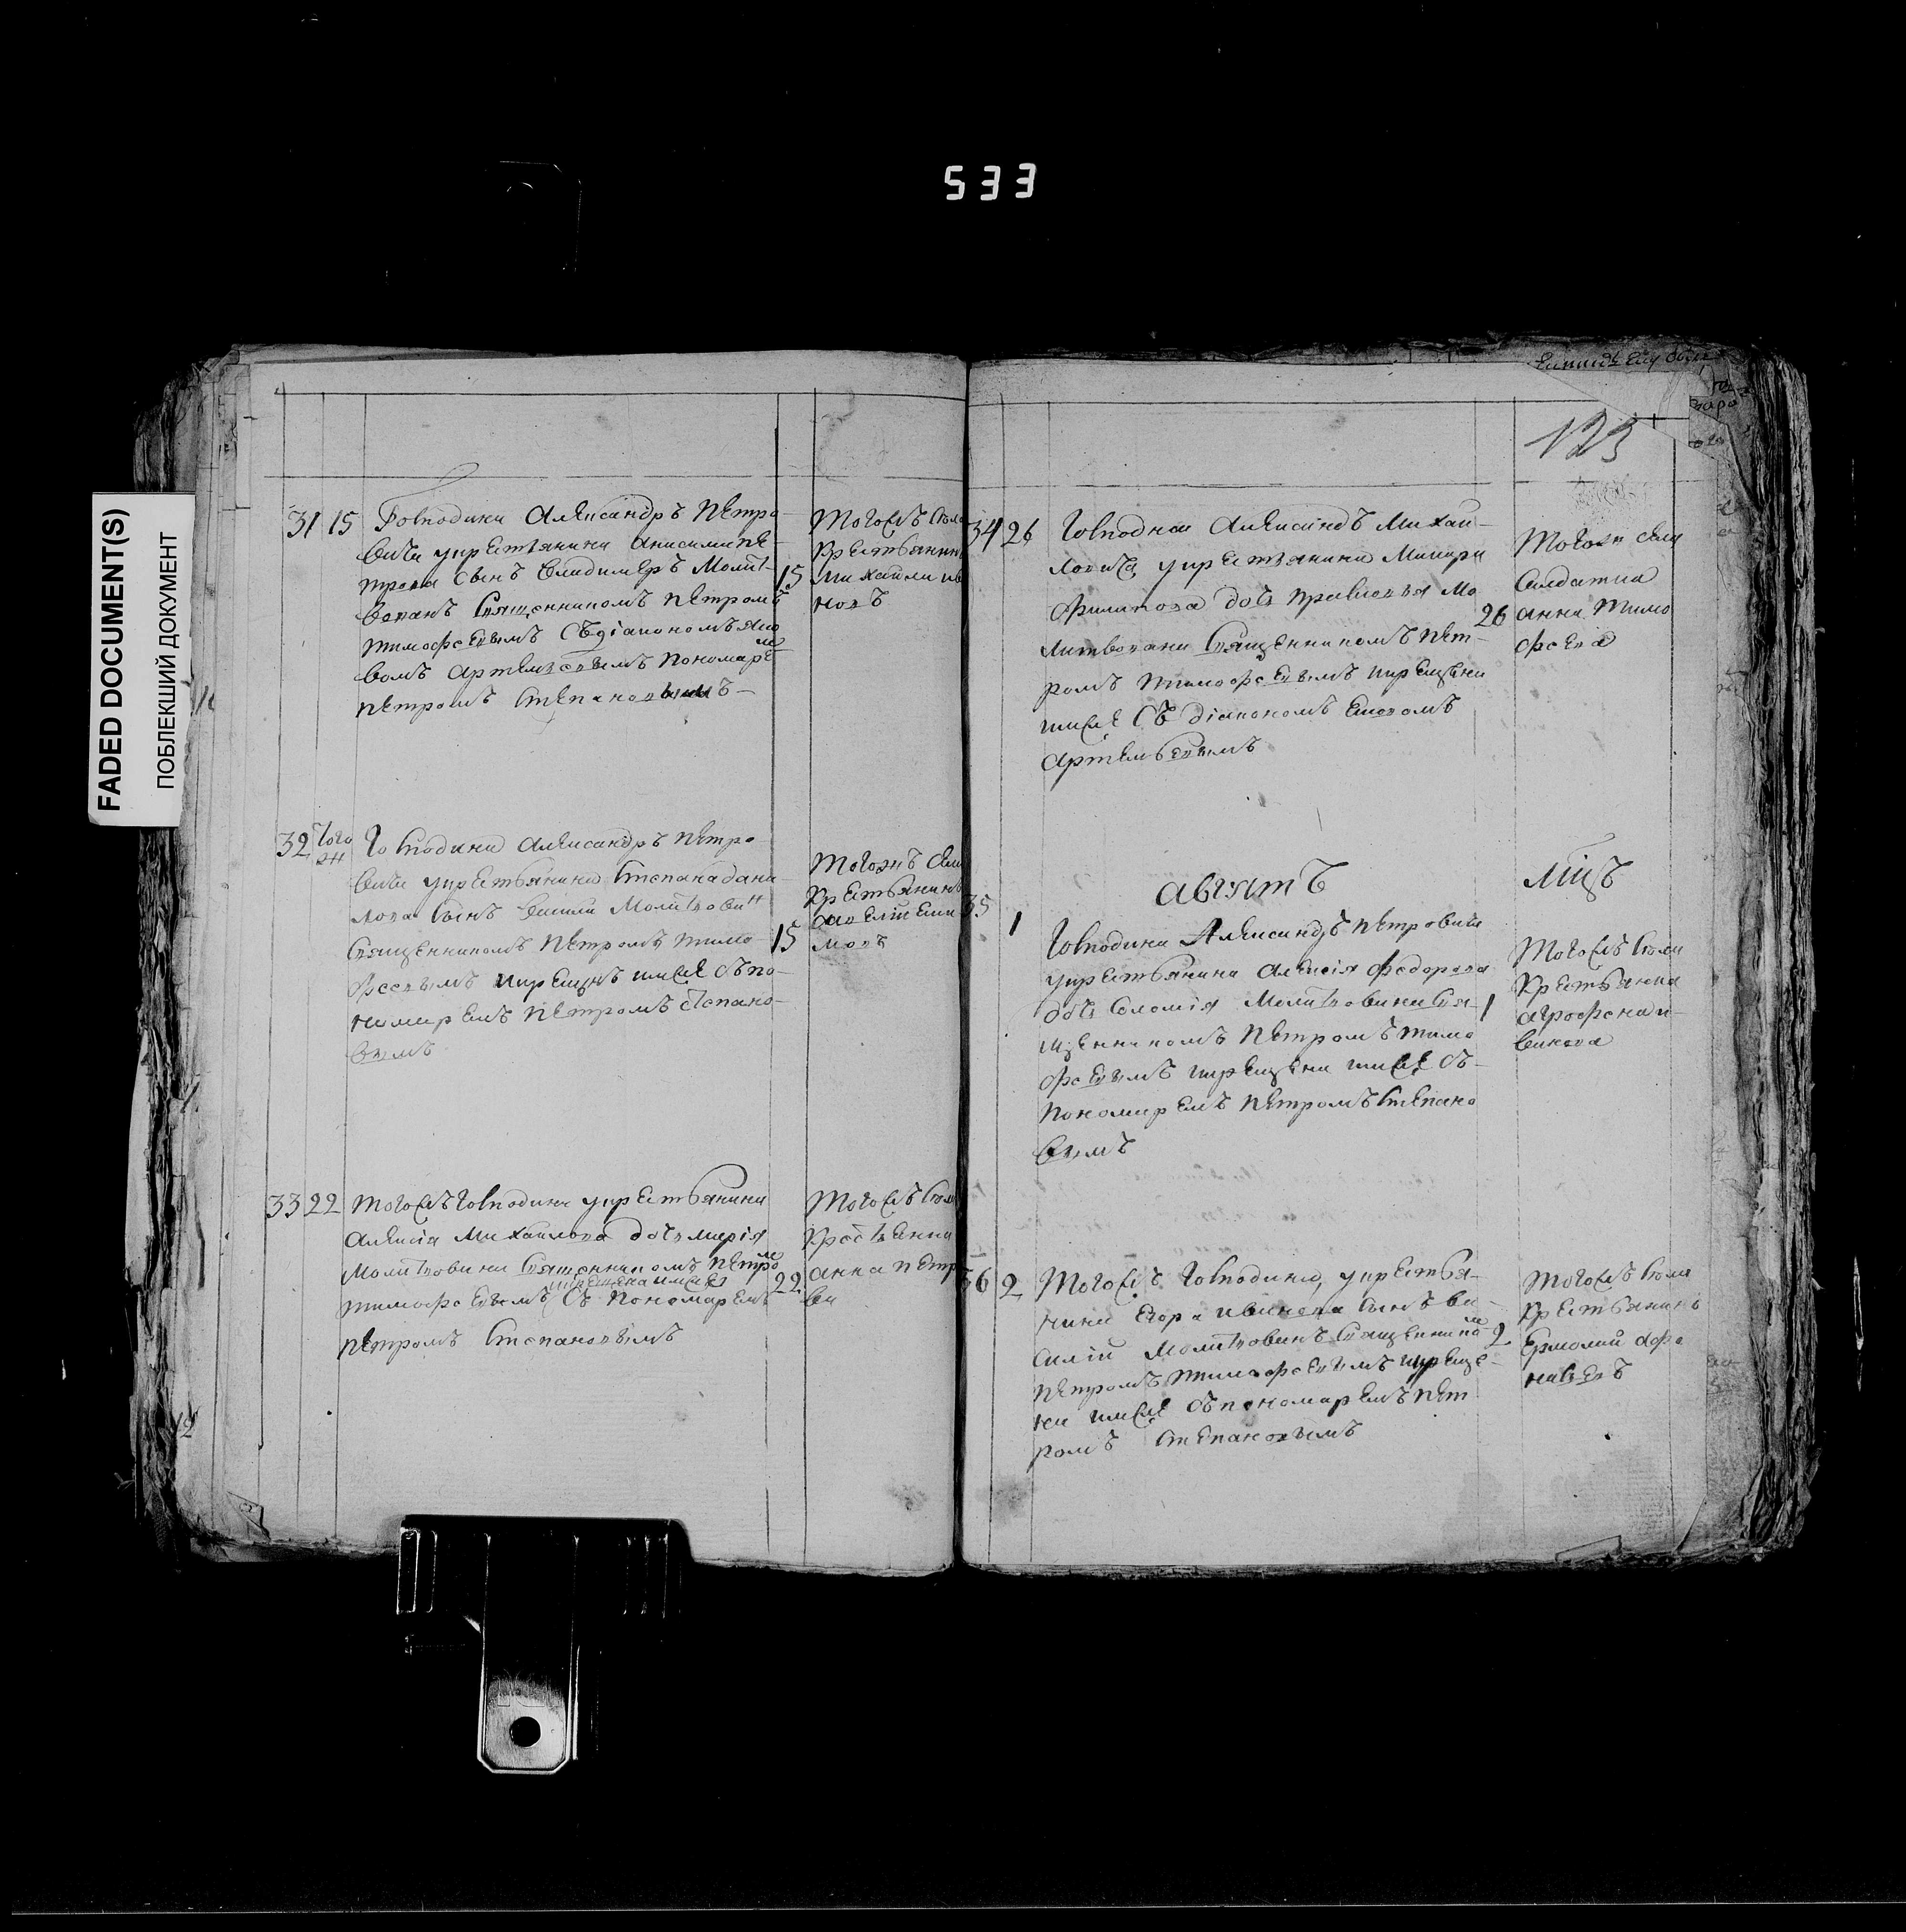 533
FADED DOCUMENT(S)
ПОБЛЕКШИЙ ДОКУМЕНТ
31 15 Господина Александръ Петро-
вича укрестьянина Анисима Пе-
трова сынъ Владимеръ Молит-
вованъ священникомъ Петромъ
Тимофеевымъ съ діакономъ Яко
вомъ Артемьевымъ пономаремъ
Петромъ Степановымъ
15 тогожъ села
крестьянинъ
Михайла Ива
новъ
32 того ж Господина Александръ Петро
вича укрестьянина Степана Дани
лова сынъ Молитвован
священникомъ Петромъ Тимо
феевымъ икрещенъ имже съ по-
номаремъ Петромъ Степано-
вымъ
15 тогожъ села
крестьянинъ
Савелій
мовъ
33 22 тогожъ господина укрестьянина
Алексія Михайлова дочь Марія
Молитвована священникомъ Петромъ
икрещена имже
Тимофеевымъ съ пономаремъ
Петромъ Степановымъ
22 тогожъ села
Анна Петро
ва
123
34 26 Александъ Михаи-
ловича укрестьянина Макара
Филипова дочь Мо
литвована священникомъ Пет-
ромъ Тимофеевымъ икрещена
имже съ діакономъ Яковомъ
Артемьевымъ
26 села
салдатка
Анна Тимо
феева
августъ мцъ
35 1 Господина Александръ Петровича
укрестьянина Алексія Федорова
дочь Соломія Молитвована свя-
щенникомъ Петромъ Тимо
феевымъ икрещена имже съ
пономаремъ Петромъ Степано
вымъ
1 тогожъ села
крестьянка
Агрофена И-
ванова
36 2 тогожъ Господина, укрестья-
нина Егора Иванова сынъ Ва-
силій Молитвованъ священникомъ
Петромъ Тимофеевымъ икреще-
на имже съ пономаремъ Пет
ромъ Степановымъ
2 тогожъ села
крестьянинъ
Ермолай Афо
насьевъ